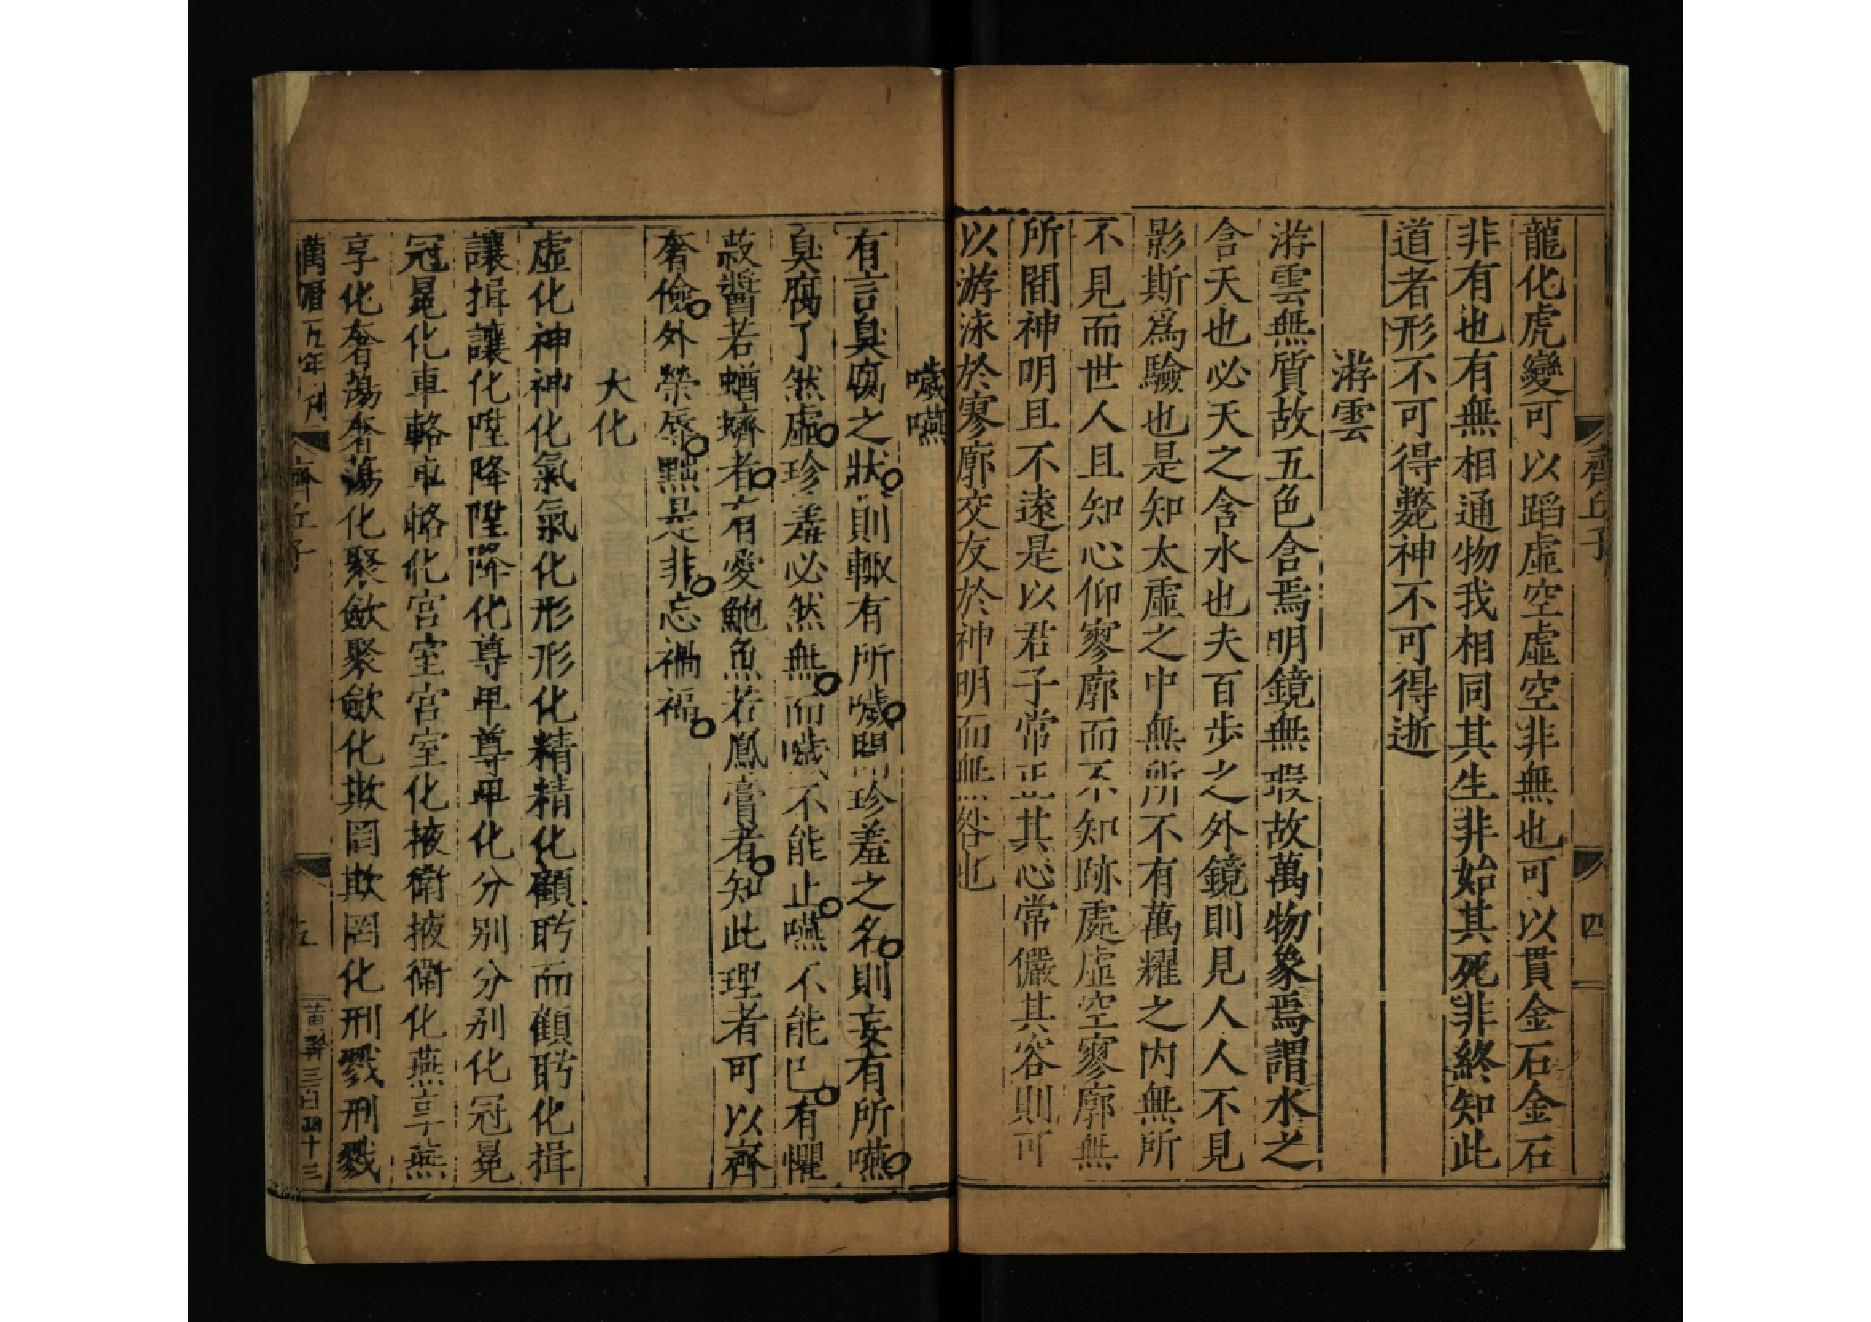 齊丘子 四
龍化虎變可以蹈虛空虛空非無也可以貫金石金石
非有也有無相通物我相同其生非始其死非終知此
道者形不可得斃神不可得逝
游雲
游雲無質故五色含焉明鏡無瑕故萬物象焉謂水之
含天也必天之含水也夫百步之外鏡則見人人不見
影斯為驗也是知太虛之中無所不有萬耀之內無所
不見而世人且知心仰寥廓而不知跡處虛空寥廓無
所間神明且不遠是以君子常正其心常儼其容則可
以游泳於寥廓交友於神明而無咎也
噦嚥
有言臭腐之狀則輒有所噦聞珍羞之名則妄有所嚥
臭腐了然虛珍羞必然無而噦不能止嚥不能已有懼
菽醬若蝤蠐者有愛鮑魚若鳳膏者知此理者可以齊
奢儉外榮辱黜是非忘禍福
大化
虛化神神化氣氣化形形化精精化顧眄而顧眄化揖
讓揖讓化陞降陞降化尊卑尊卑化分別分別化冠冕
冠冕化車輅車輅化宮室宮室化掖衛掖衛化燕享燕
享化奢蕩奢蕩化聚斂聚斂化欺罔欺罔化刑戮刑戮
萬曆五年刊 齊丘子 五 黃 三百四十三